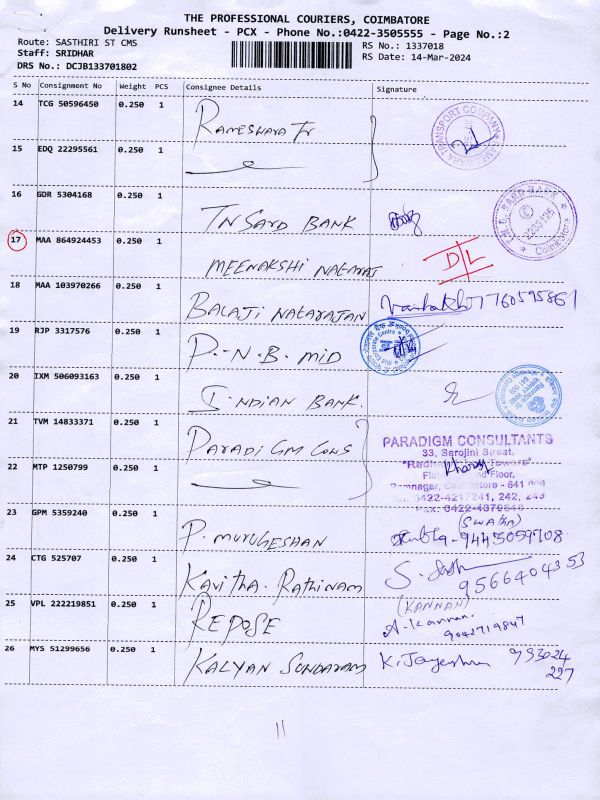 THE PROFESSIONAL COURIERS, COIMBATORE
Delivery Runsheet - PCX - Phone No.:0422-3505555 - Page No.:2
Route: SASTHIRI ST CMS
RS No.: 1337018
Staff: SRIDHAR
RS Date: 14-Mar-2024
DRS No.: DCJB133701802
S No Consignment No Weight PCS Consignee Details Signature
14 TCG 50596450 0.250 1
RAMESWARA Tr
TRANSPORT COMPANY
15 EDQ 22295561 0.250 1
16 GDR 5304168 0.250 1
TN SARD BANK
17 MAA 864924453 0.250 1
MEENAKSHI NATARAJ
D/L
18 MAA 103970266 0.250 1
BALAJI NATARAJAN
7760595861
19 RJP 3317576 0.250 1
P.N.B. MID
20 IXM 506093163 0.250 1
INDIAN BANK.
21 TVM 14833371 0.250 1
PARADIGM CONS
PARADIGM CONSULTANTS
33, Sarojini Street,
22 MTP 1250799 0.250 1
Ramnagar, Coimbatore - 641 009
0422-4217241, 242, 243
23 GPM 5359240 0.250 1
P. MURUGESHAN
(SWATKA)
9445059708
24 CTG 525707 0.250 1
KAVITHA. RATHINAM
9566404353
25 VPL 222219851 0.250 1
REPOSE
(KANNAN)
A. Kannan.
9042719847
26 MYS 51299656 0.250 1
KALYAN SUNDARAM
K. Jayeshree
933024
227
11